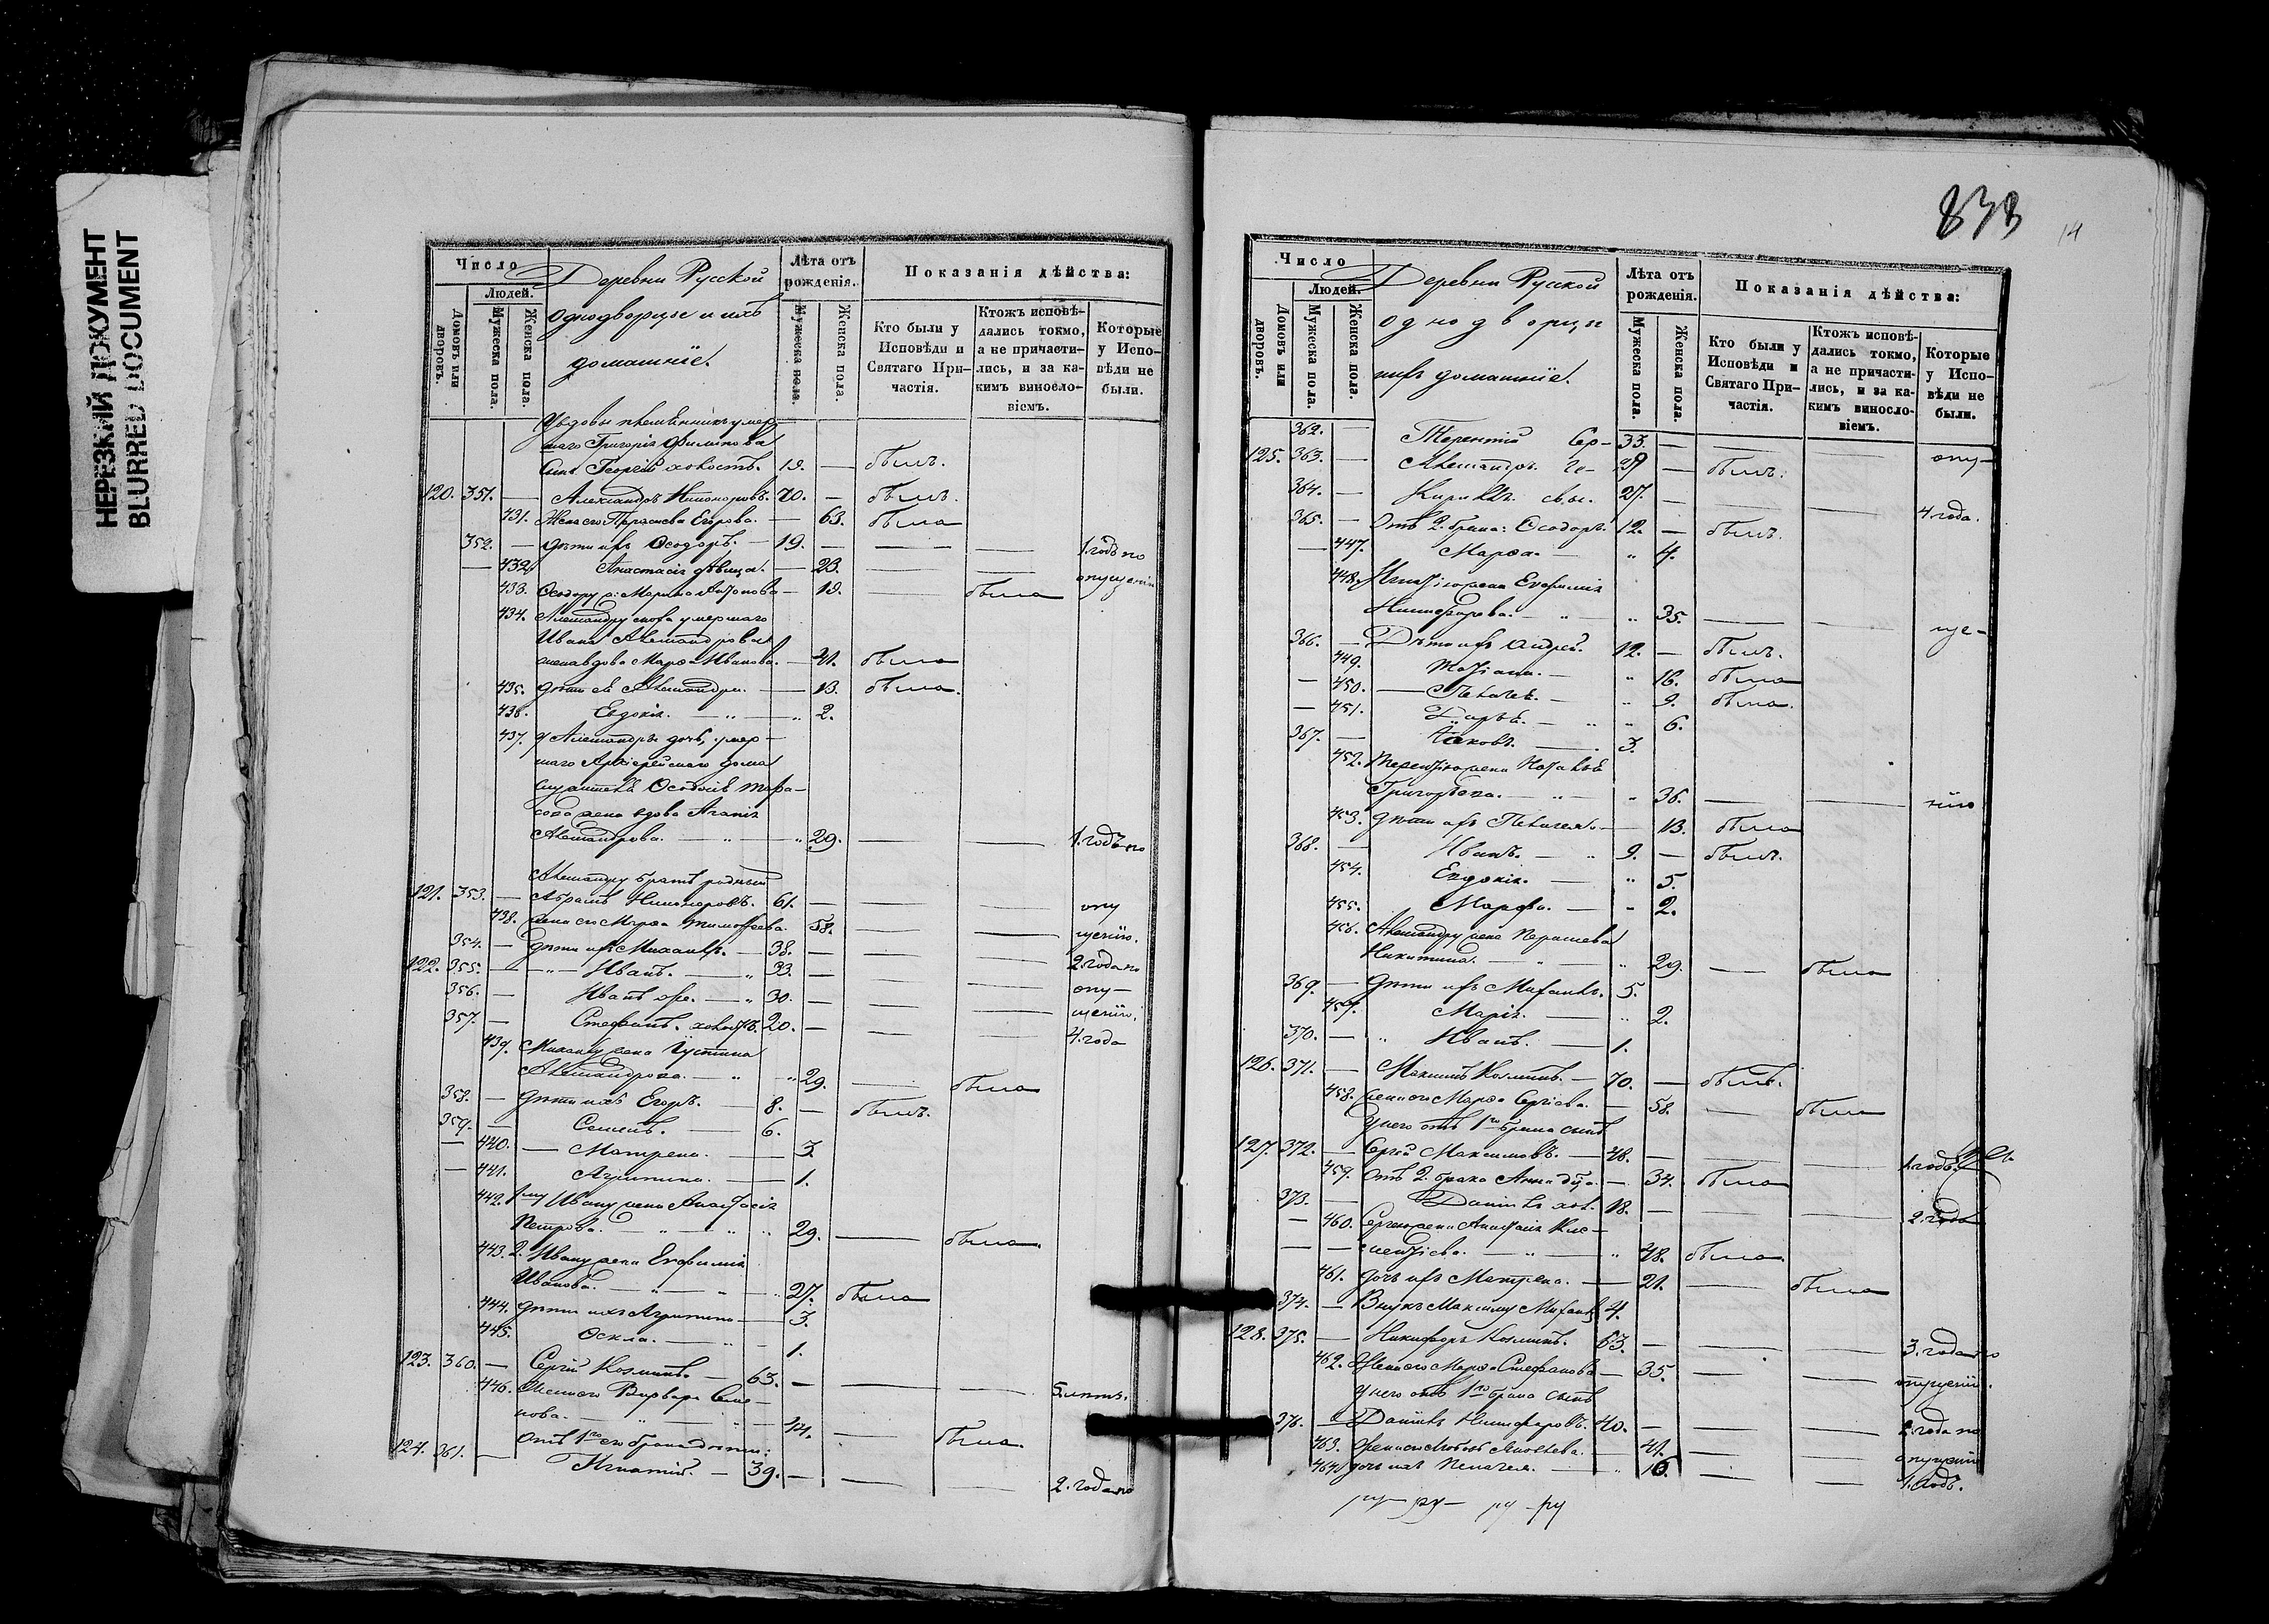 НЕРЕЗКИЙ ДОКУМЕНТ
BLURRED DOCUMENT
Число
Людей.
Домовъ или дворовъ.
Мужеска пола.
Женска пола.
Деревни Русской
однодворцы и ихъ
домашніе.
Лѣта отъ рожденія.
Мужеска пола.
Женска пола.
Показанія дѣйства:
Кто были у Исповѣди и Святаго Причастія.
Ктожъ исповѣдались токмо, а не причастились, и за какимъ винословіемъ.
Которые у Исповѣди не были.
шаго Григорія Филипова
сынъ Георгій холостъ. 19. — былъ.
120. 351. — Александръ Никоноровъ. 70. — былъ.
431. Жена его Егорова. — 63. была
352. — дѣти ихъ Ѳеодоръ. — 19. — — — 1. годъ по
— 432. Анастасія дѣвица. — 23. — — опущенію
433. Ѳеодору ж: Марина Антонова — 19. — была
434. Александру сноха умершаго
Ивана Александрова
жена вдова Марѳа Иванова. — 41. была
435. дѣти ея Александра. — 13. была.
436. Евдокія. — „ — „ 2.
437. у Александра дочь, умер-
шаго Архіерейскаго дома
жена вдова Агапія
Александрова. — „ — „ 29. — — 1. годъ по
Александру братъ родный
121. 353. — Абрамъ Никоноровъ. 61. — — — опу
438. жена его Марѳа Тимофеева. 58. — — щенію.
354. — дѣти ихъ Михаилъ. — 38. — — — 2. года по
122. 355. — „ — Иванъ. — „ 33. — — — опу—
356. — Иванъ же. — „ 30. — — — щенію.
357. — Стефанъ. холостъ. 20. — — — 4. года
439. Михаилу жена Іустина
Александрова. — „ — „ 29. — была
358. — дѣти ихъ Егоръ. — 8. — былъ.
359. — Семенъ. — 6.
— 440. — Матрена. — 3.
— 441. Агрипина. — 1.
442. 1му Ивану жена Анастасія
Петрова. — „ — „ „ 29. — была.
443. 2. Ивану жена Евфимія
Иванова. — „ — „ — „ 27. была
444. дѣти ихъ Агрипина — 3.
445. Ѳекла. — „ — 1.
123. 360. — Сергій Козминъ. — 63. — — — 5. лѣтъ.
446. Жена его Варвара Семе-
нова. — „ — „ — 44. — была.
отъ 1го его брака дѣти:
124. 361. — Игнатій. — 39. — — — 2. года по
833
14
Число
Людей.
Домовъ или дворовъ.
Мужеска пола.
Женска пола.
Деревни Русской
однодворцы
и ихъ домашніе.
Лѣта отъ рожденія.
Мужеска пола.
Женска пола.
Показанія дѣйства:
Кто были у Исповѣди и Святаго Причастія.
Ктожъ исповѣдались токмо, а не причастились, и за какимъ винословіемъ.
Которые у Исповѣди не были.
362. — Терентій Сер— 33. — — — опу—
125. 363. — Александръ ге— — былъ.
364. — Кириллъ 27. — — — 4. года.
365. — Отъ 2. брака: Ѳеодоръ. 12. — былъ.
— 447. Марѳа. — „ 4.
448. Игнатію жена Евфимія
Никифорова. — „ — „ 35. — — ще—
366. — Дѣти ихъ Андрей. 12. — былъ.
449. Татіана. — „ 16. была
— 450. — Пелагея. — „ 9. была.
— 451. Дарья. — „ „ 6.
367. — Іаковъ. — 3.
452. Терентію жена Наталья
Григорьева. — „ — „ 36. — — нію
453. дѣти ихъ Пелагея — 13. была
368. — Иванъ. — „ 9. — былъ.
454. Евдокія. — „ 5.
455. Марѳа. — „ 2.
456. Александру жена
Никитина. — „ — „ 29. — была
369. — дѣти ихъ Михаилъ. 5.
457. Марія. — „ 2.
370. — „ Иванъ. — 1.
126. 371. — Максимъ Козминъ. — 70. — былъ.
458. жена его Марѳа Сергіева. — 58. — была
у него отъ 1го брака сынъ
127. 372. — Сергій Максимовъ. — 48. — — — 1. годъ.
459. Отъ 2. брака Анна — 34. была
373. — Даніилъ хол. 18. — — — 2. года
— 460. Сергею жена Анастасія Кле-
— — ментіева. — „ — „ 48. была.
461. дочь ихъ Матрена. — 21. — была
374. — Внукъ Максиму Михаилъ 4.
128. 375. — Никифоръ Козминъ. 63. — — — 3. года по
462. Жена его Марѳа Стефанова — 35. — — опущенію.
у него отъ 1го брака сынъ
376. — Даніилъ Никифоровъ. 40. — — — 2. года по
463. Жена его Любовь Яковлева. 41. — — опущенію
464. дочь ихъ Пелагея. — „ 16. — — 1. годъ.